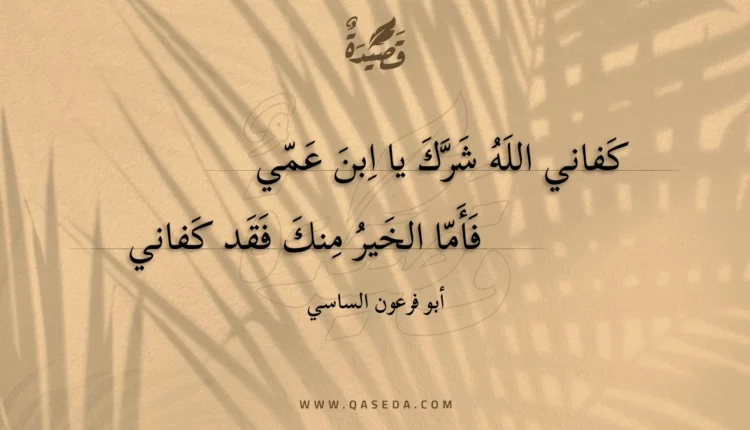 قَصِيدَةٌ
كَفاني اللَهُ شَرَّكَ يا اِبنَ عَمّي
فَأَمّا الخَيرُ مِنكَ فَقَد كَفاني
أبو فرعون الساسي
WWW.QASEDA.COM